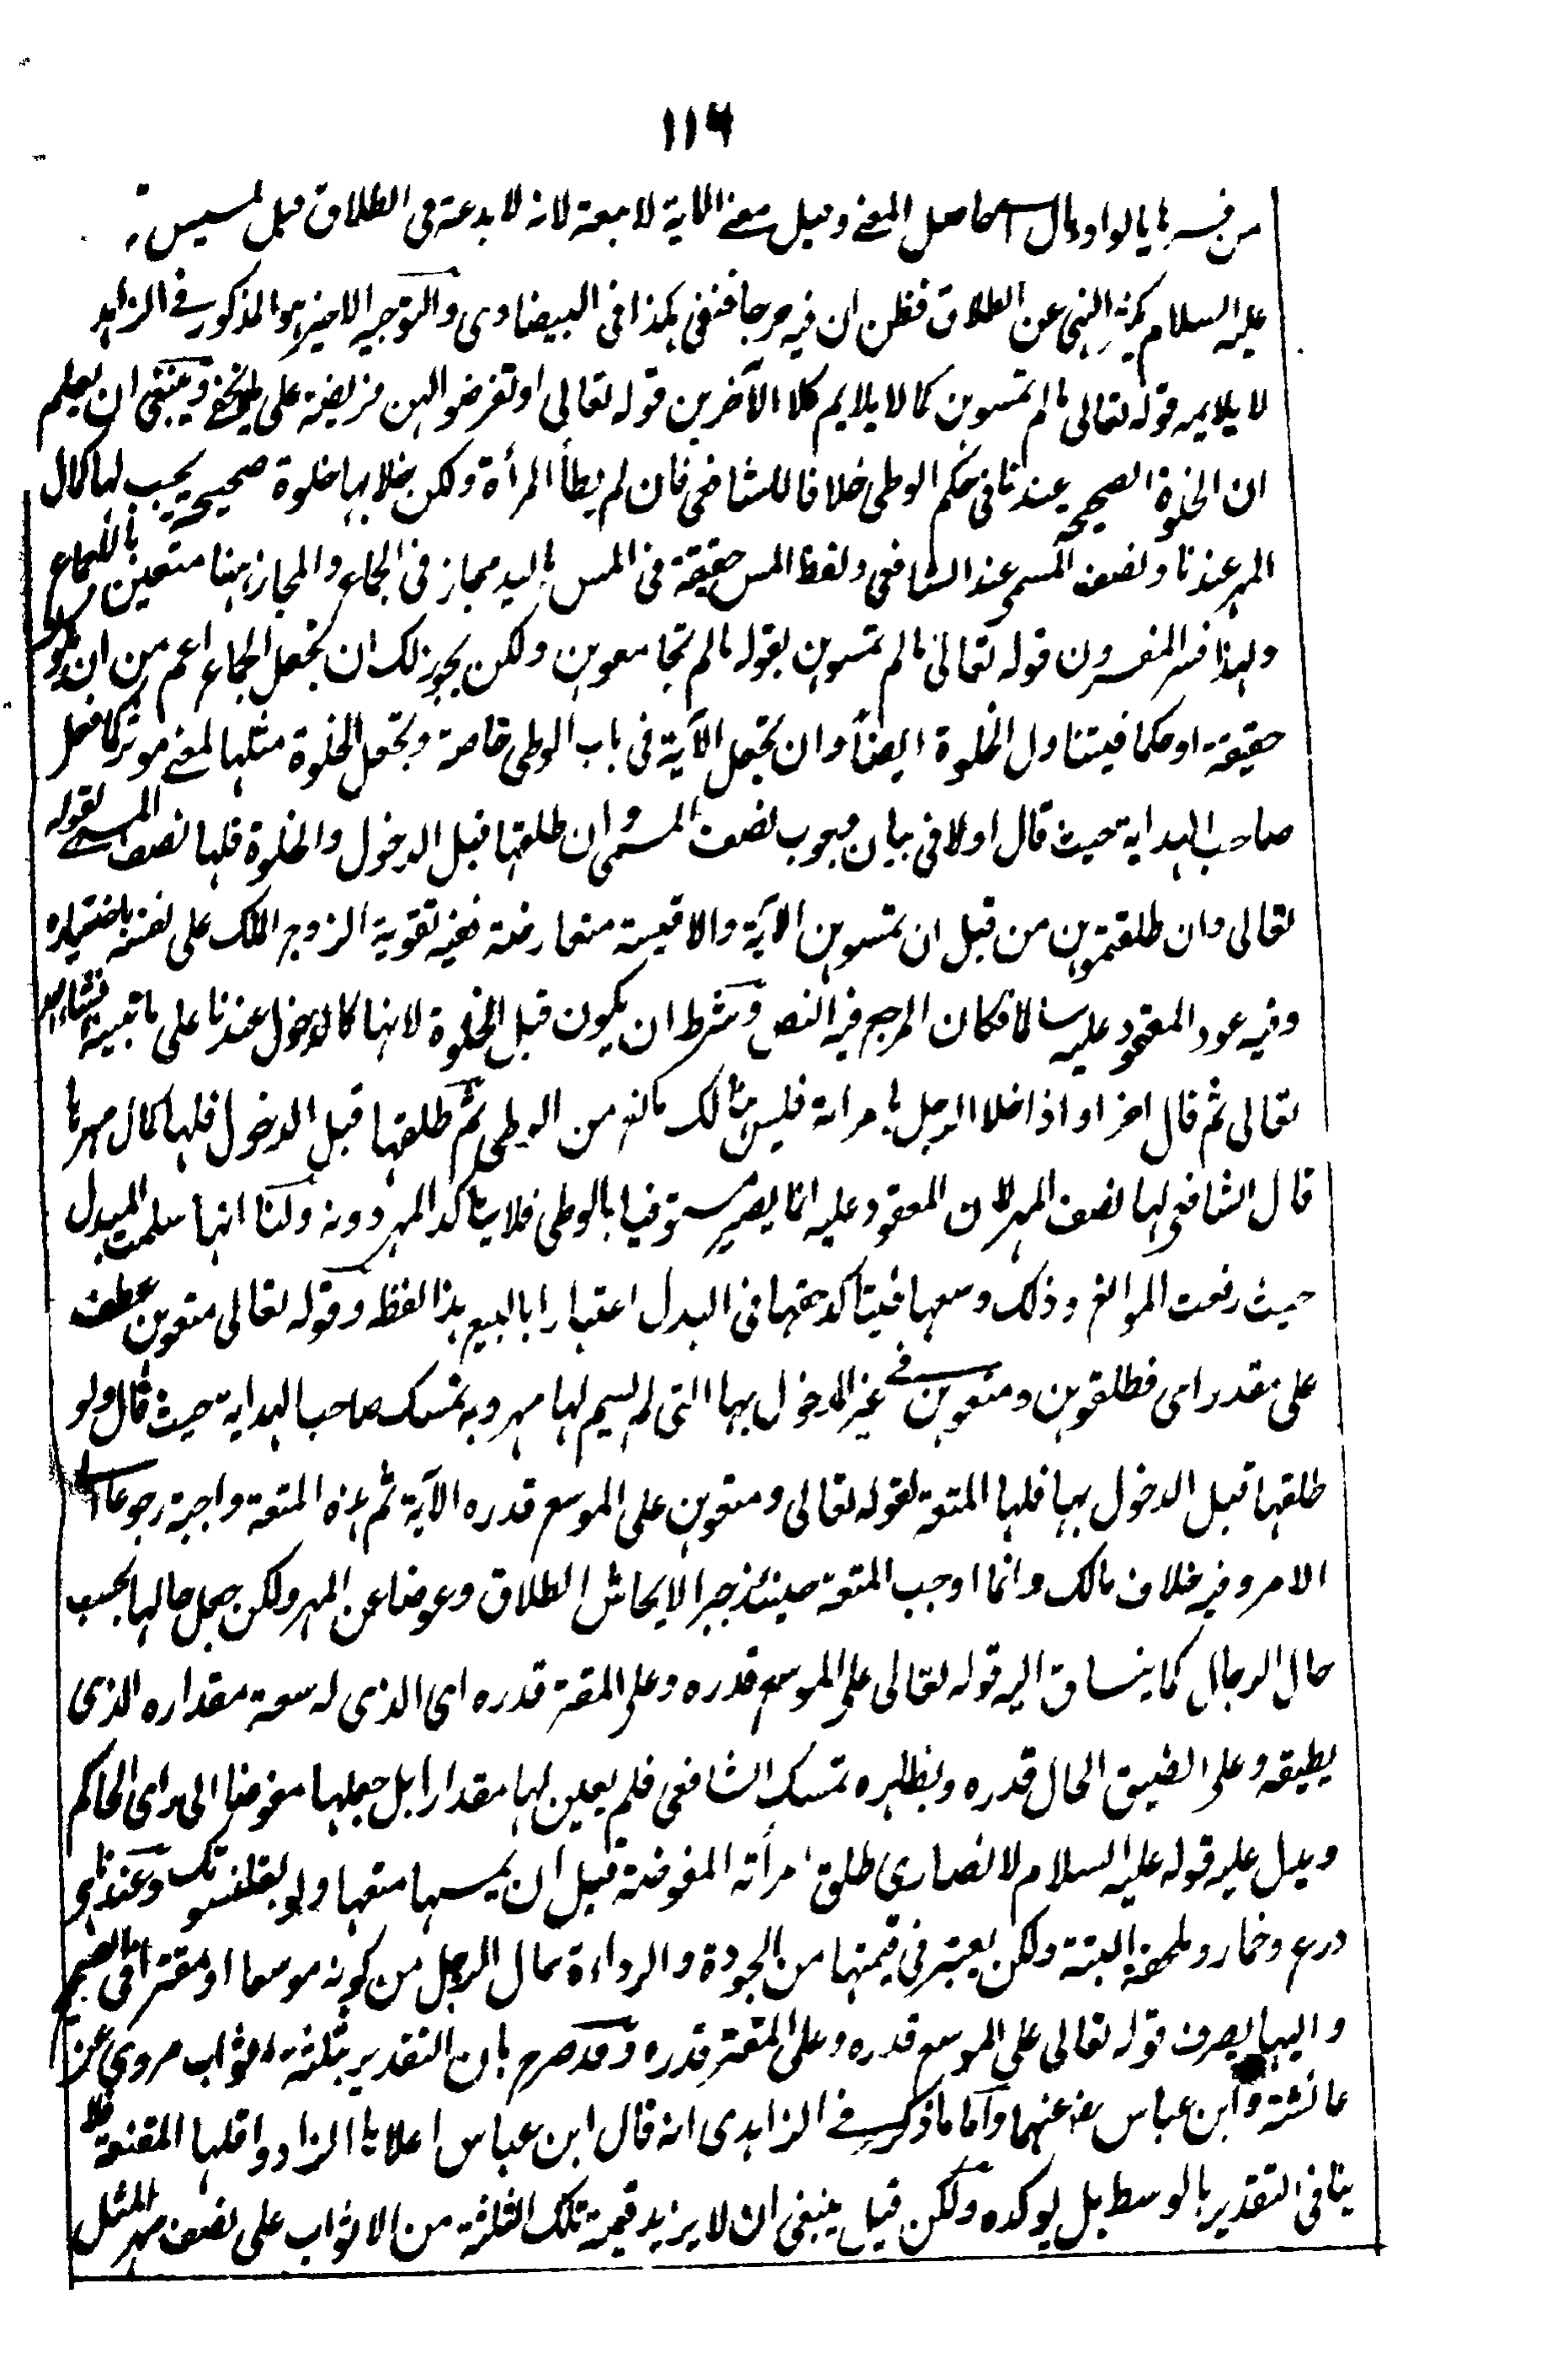 ١١٦
من فسرها بالواو وقال حاصل المعنى وقيل معنى الآية لا تبعة لانه لا بدعة فى الطلاق قبل المسيس
عليه السلام يكثر النهى عن الطلاق فظن ان فيه حرجا فنفى هكذا فى البيضاوى والتوجيه الاخير هو المذكور فى الزاهد
لا يلايمه قوله تعالى ما لم تمسوهن كما لا يلايم كلا الآخرين قوله تعالى او تفرضوا لهن فريضة على ما لا يخفى وينبغى ان يعلم
ان الخلوة الصحيحة عندنا فى حكم الوطى خلافا للشافعى فان لم يطأ المرأة ولكن خلا بها خلوة صحيحة يجب لها كمال
المهر عندنا ونصف المسمى عند الشافعى ولفظ المس حقيقة فى المس باليد مجاز فى الجماع والمجاز ههنا متعين بالاجماع
ولهذا فسر المفسرون قوله تعالى ما لم تمسوهن بقوله ما لم تجامعوهن ولكن يجوز لك ان تجعل الجماع اعم من ان يكون
حقيقة او حكما فيتناول الخلوة ايضا وان تجعل الآية فى باب الوطى خاصة وتجعل الخلوة مثلها لمعنى موثر كما فعل
صاحب الهداية حيث قال اولا فى بيان وجوب نصف المسمى وان طلقها قبل الدخول والخلوة فلها نصف المسمى لقوله
تعالى وان طلقتموهن من قبل ان تمسوهن الآية والاقيسة متعارضة ففيه تفوية الزوج الملك على نفسه باختياره
وفيه عود المعقود عليه سالما فكان المرجع فيه النص وشرط ان يكون قبل الخلوة لانها كالدخول عندنا على ما تبينه ان شاء الله
تعالى ثم قال اخرا واذا خلا الرجل بامرأته فليس هنالك مانع من الوطى ثم طلقها قبل الدخول فلها كمال مهرها
قال الشافعى لها نصف المهر لان المعقود عليه انما يصير مستوفيا بالوطى فلا يتأكد المهر دونه ولنا انها سلمت المبدل
حيث رفعت الموانع وذلك وسعها فيتاكد حقها فى البدل اعتبارا بالبيع هذا لفظه وقوله تعالى متعوهن عطف
على مقدر اى فطلقوهن ومتعوهن فى غير المدخول بها التى لم يسم لها مهر وبه تمسك صاحب الهداية حيث قال ولو
طلقها قبل الدخول بها فلها المتعة لقوله تعالى ومتعوهن على الموسع قدره الآية ثم هذه المتعة واجبة رجوعا الى
الامر وفيه خلاف مالك وانما اوجب المتعة حينئذ جبرا لايحاش الطلاق وعوضا عن المهر ولكن جعل حالها بحسب
حال الرجال كما ينساق اليه قوله تعالى على الموسع قدره وعلى المقتر قدره اى الذى له سعة مقداره الذى
يطيقه وعلى الضيق الحال قدره وبظاهره تمسك الشافعى فلم يعين لها مقدارا بل جعلها مفوضا الى راى الحاكم
ويدل عليه قوله عليه السلام لانصارى طلق امرأته المفوضة قبل ان يمسها متعها ولو بقلنسوتك وعندنا هى
درع وخمار وملحفة البتة ولكن يعتبر فى قيمتها من الجودة والرداءة بحال الرجل من كونه موسعا او مقترا فى الصحيح
واليها يصرف قوله تعالى على الموسع قدره وعلى المقتر قدره وقد صرح بان التقدير بثلثة اثواب مروى عن
عائشة وابن عباس رض عنهما واما ما ذكر فى الزاهدى انه قال ابن عباس اعلاها الزاد واقلها المقنعة فلا
ينافى التقدير بالوسط بل يوكده ولكن قيل ينبغى ان لا يزيد قيمة تلك الثلثة من الاثواب على نصف مهر المثل